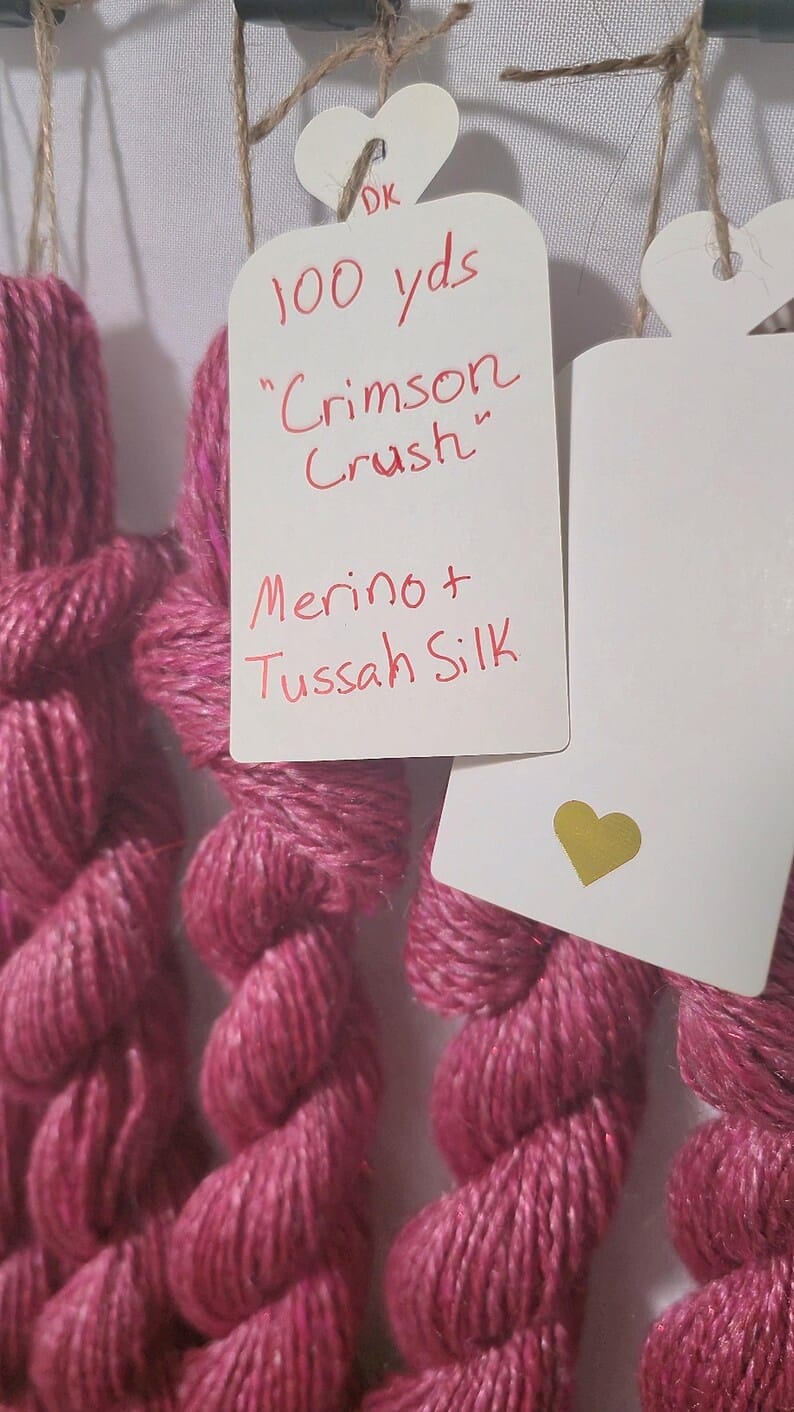 DK
100 yds
"Crimson
Crush"
Merino +
Tussah Silk